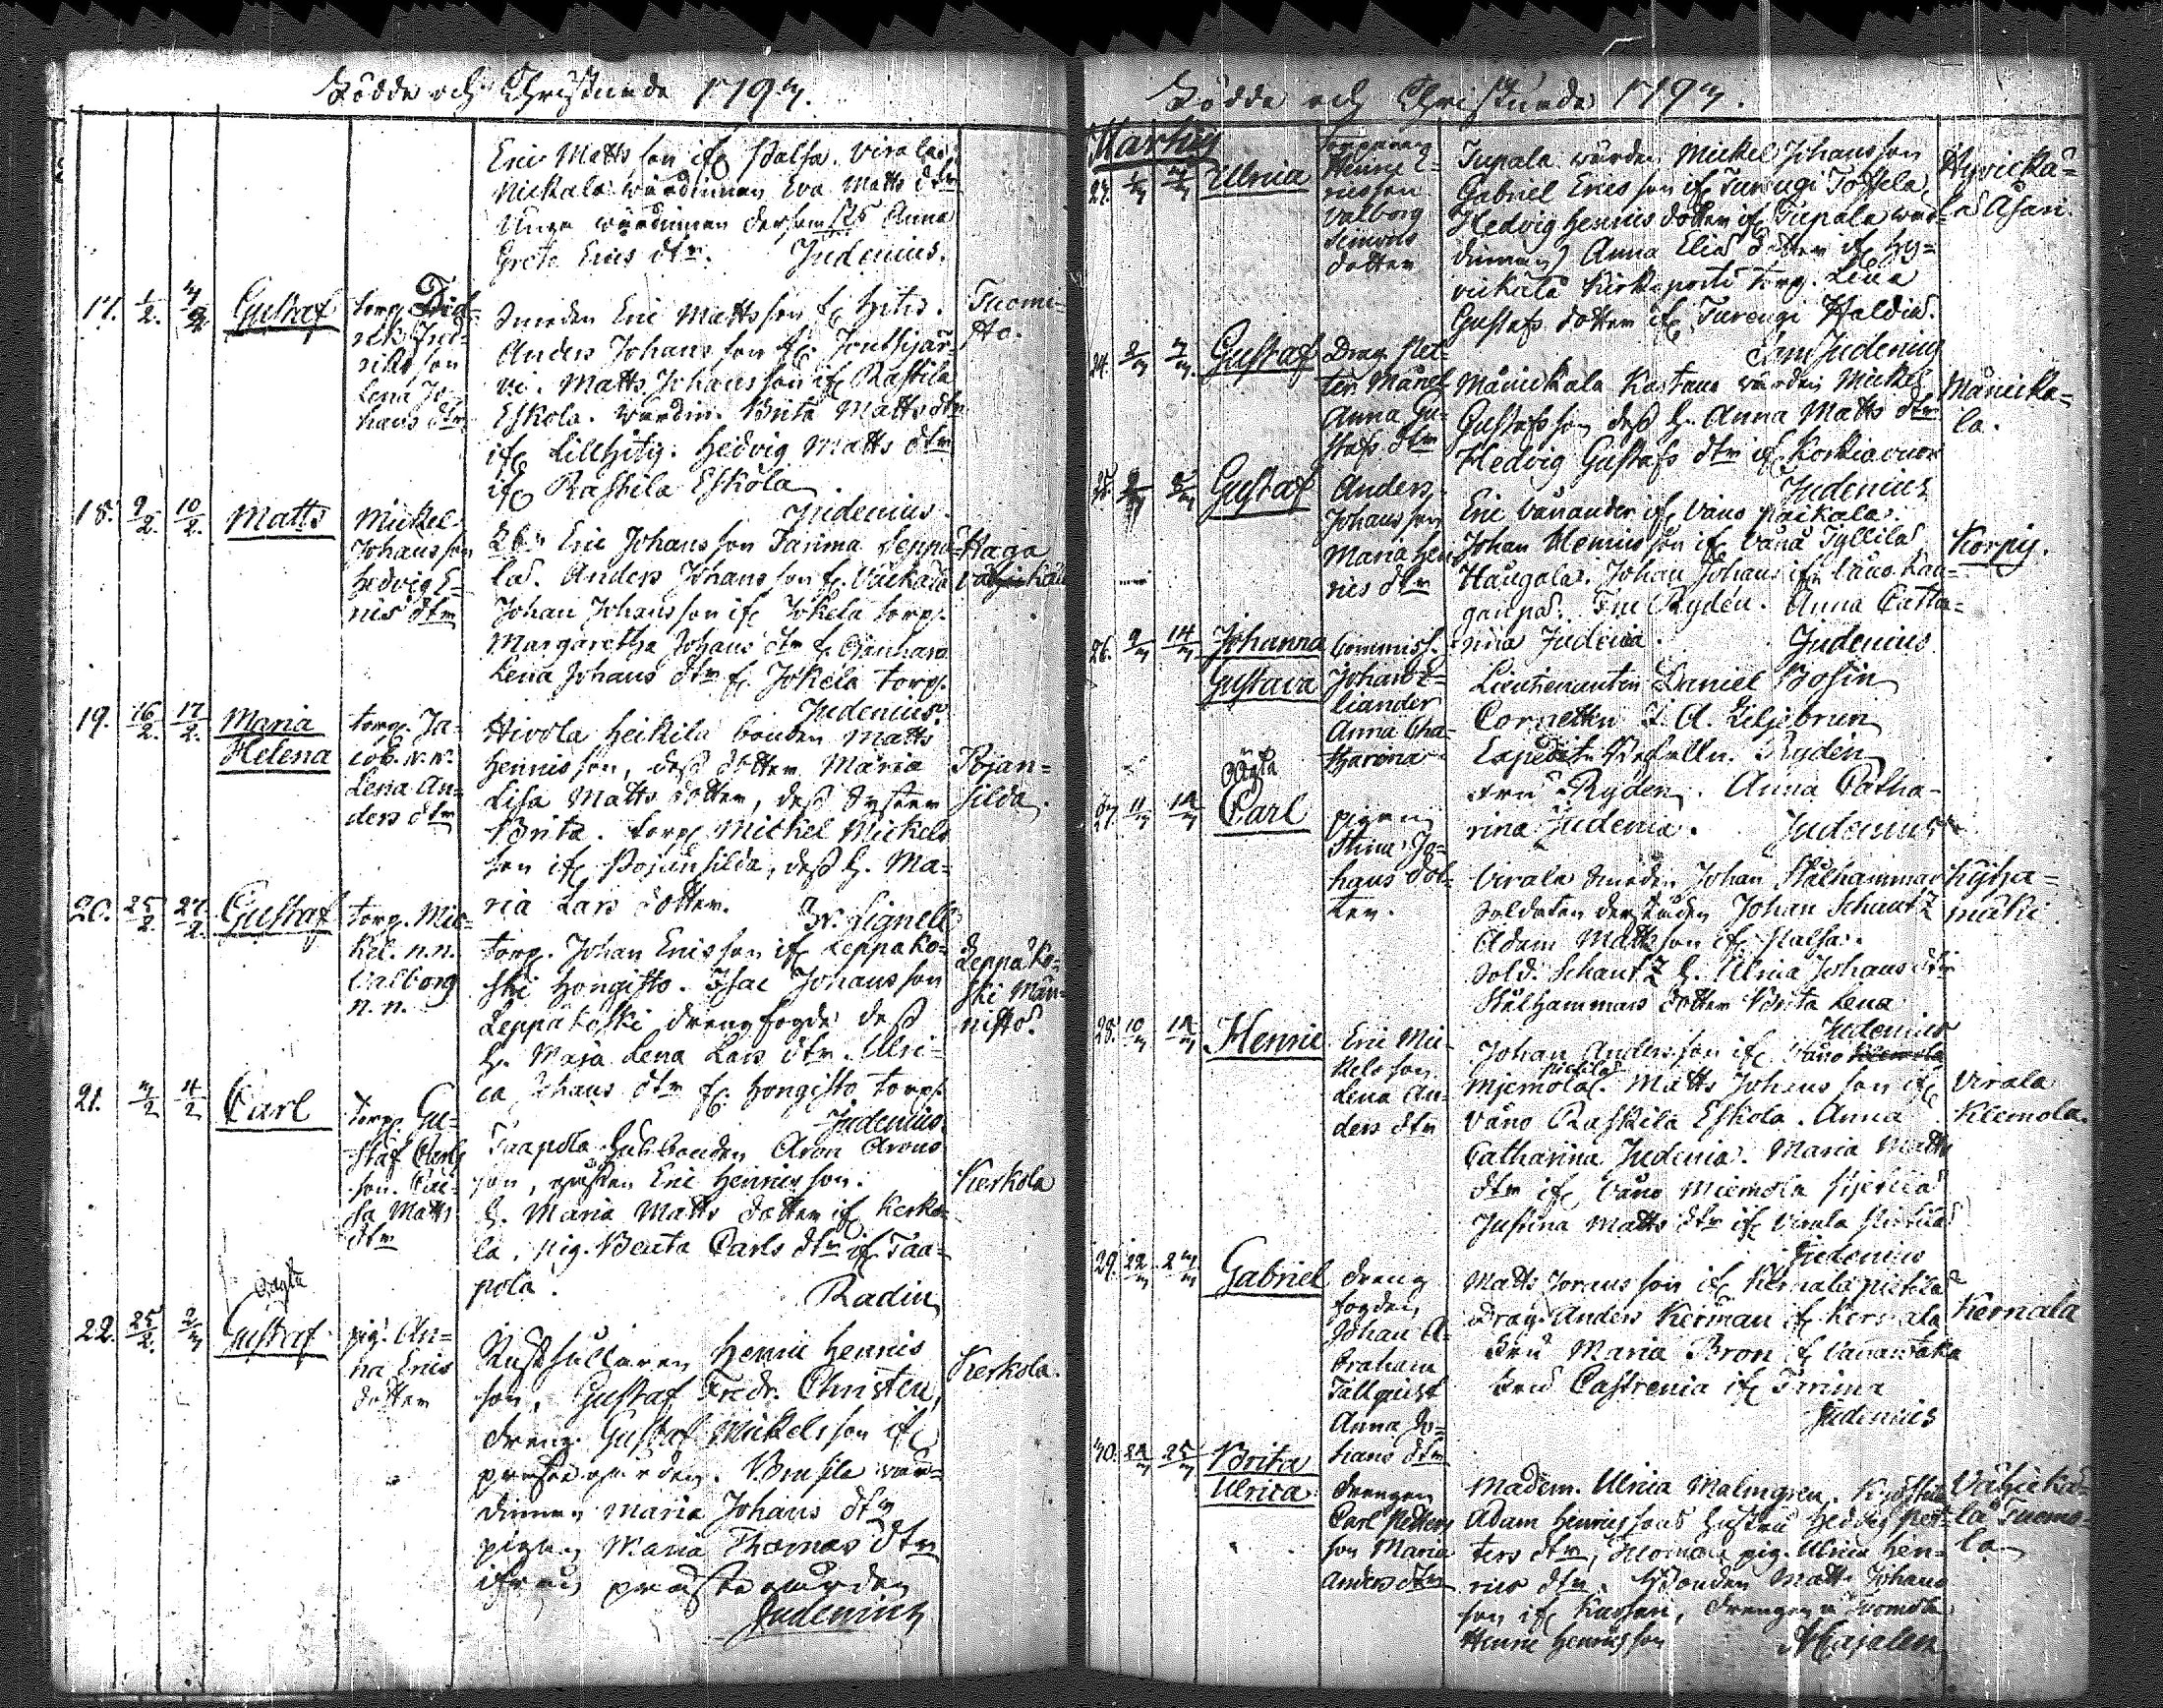 Födde och Christnade 1793.
Eric Mattsson if. Palsa. Virala
Nickala wärdinnan Eva Matts dtr
Unga wärdinnan dersam̄st. Anna
Greta Erics dtr. Judenius.
17. 1/2. 3/2 Gustaf
torp. Did-
rik Did-
riksson
Lena Jo-
hans dtr
Smeden Eric Mattsson f. Hitis.
Anders Johansson if. Jouttjär-
vi. Matts Johansson if. Rastila
Eskola. Wärdin. Brita Matts dtr
if. Lillhitis. Hedvig Matts dtr
if. Rastila Eskola
Judenius.
Tuomi-
sto.
18. 9/2. 10/2. Matts
Mickel
Johansson
Hedvig E-
rics dtr
Eric Johansson Tarima Seppä-
lä. Anders Johansson f.
Johan Johansson if. Jokela torp.
Margaretha Johans dtr f.
Lena Johans dtr f. Jokela torp.
Judenius.
Haga
19. 16/2. 17/2. Maria
Helena
torp. Ja-
cob. n.n.
Lena An-
ders dtr
Hirola Heikilä bonden Matts
Henricsson, dess dotter Maria
Lisa Matts dotter, dess syster
Brita. torp. Mickel Mickels
son if. Pojansilda, dess h. Ma-
ria Lars dotter. Gr. Lignell
Pojan-
silda.
20. 25/2. 27/2. Gustaf
torp. Mic-
kel. n.n.
Valborg
n.n.
torp. Johan Ericsson if. Leppäko-
ski Hongisto. Isac Johansson
Leppäkoski drengfogde dess
h. Maja Lena Lars dtr. Ulri-
ca Johans dtr f. Hongisto torp.
Judenius.
Leppäko-
ski Män-
nistö.
21. 3/2 4/2 Carl
torp. Gu-
staf Carls
son. Cai-
sa Matts
dtr
Taapola Aron Arons
son, Eric Henricsson.
h. Maria Matts dotter if. Kerko-
la. pig. Beata Carls dtr if. Taa-
pola. Radin
Kerkola
Oägta
22. 25/2. 2/3 Gustaf
pig. An-
na Erics
dotter
Rusthållaren Henric Henrics
son. Gustaf Fredr. Christen,
dreng. Gustaf Mickelsson if.
prästegården. wär-
dinnan Maria Johans dtr
pigan Maria Thomas dtr
ifrån prästegården
Judenius
Kerkola.
Födde och Christnade 1793.
Martius
23. 1/3 3/3 Ulrica
Torparen
Henric E-
ricsson
Valborg
Simons
dotter
Tupala wärden Mickel Johansson
Gabriel Ericsson if. Turengi Toffela,
Hedvig Henrics dotter if. Tupala wär-
dinnan, Anna Elias dotter if. Hy-
vickälä Kirkeporti torp. Lena
Gustafs dotter if. Turengi Haldia.
Sam Judenius
Hyvickä-
lä Asari.
24. 2/3 3/3. Gustaf
Drag. Pet-
ter Månel
Anna Gu-
stafs dtr
Mänickala Kartano wärden Mickel
Gustafsson dess h. Anna Matts dtr
Hedvig Gustafs dtr if. Korkiavuori
Judenius
Mänicka-
la.
25. Gustaf
Anders
Johansson
Maria Hen-
rics dtr
Eric Vånander if. Vånå paikala.
Johan Henricsson if. Vånå Tyllilä
Haugala. Johan Johans if. Vånå Kan-
ganpä. Fru Rydén. Anna Catha-
rina Judenia. Judenius
Korpij.
26. 9/3 14/3 Johanna
Gustava
Commiss.
Johan E-
liander
Anna Cha-
tharina
Lieutienanten Daniel Bosin
Cornetten J. A. Liljebrun
Expedit. Befalln. Ryden
Fru Ryden. Anna Catha-
rina Judenia. Judenius
Oägta
27. 11/3 12/3 Carl
pigan
Stina Jo-
hans dot-
ter.
Virala smeden Johan Stålhammar
Soldaten derstädes Johan Schantz
Adam Mattsson if. Palsa.
Sold. Schantz h. Ulrica Johans dtr
Stålhammars dotter Brita Lena
Judenius
mäki
28. 10/3 12/3 Henric
Eric Mic-
kelsson
Lena An-
ders dtr
Johan Andersson if. Vånå
Miemola. Matts Johansson if.
Vånå Raskila Eskola. Anna
Catharina Judenia. Maria Matts
dtr if. Vånå Miemola
Justina Matts dtr if. Virala
Judenius
Virala
Klemola.
29. 22/3 23/3 Gabriel
dreng
fogden
Johan A-
braham
Tallquist
Anna Jo-
hans dtr
Matts Johansson if. Kernala
Drag. Anders Kerman if. Kernala
Fru Maria Bron f. Vanantaka
Fru Castrenia if. Tarima
Judenius
Kernala
30. 24/3 25/3 Brita
Ulrica
drengen
Carl Petters
son Maria
Anders dtr
Madem. Ulrica Malmgren.
Adam Henricssons hustru Hedvig Pet-
ters dtr, Tuomola pig. Ulrica Hen-
rics dtr. bonden Matts Johans
son if. drengen Tuomola
Henric Henricsson AHajalen
Vähickä-
lä Tuomo-
la